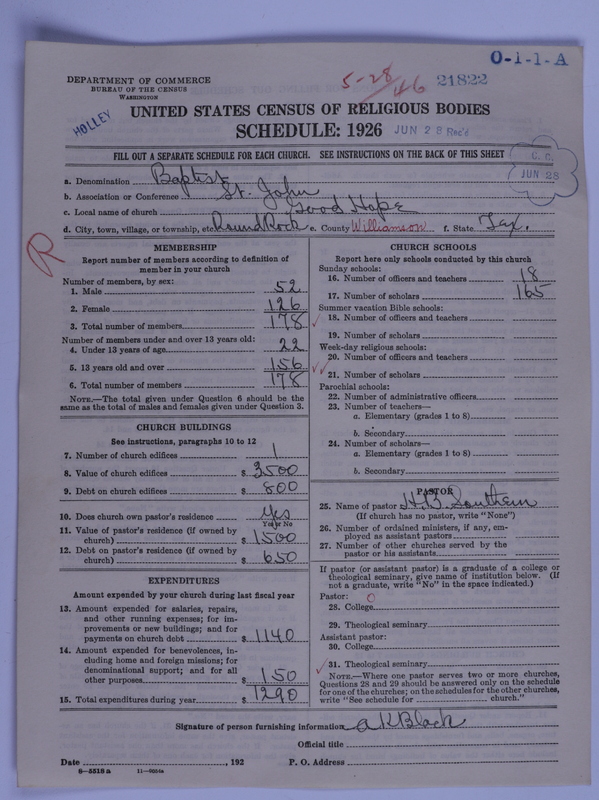 O-1-1-A
DEPARTMENT OF COMMERCE
BUREAU OF THE CENSUS
WASHINGTON
5-28/46 21822
HOLLEY
UNITED STATES CENSUS OF RELIGIOUS BODIES
SCHEDULE: 1926 JUN 28 Rec'd
FILL OUT A SEPARATE SCHEDULE FOR EACH CHURCH. SEE INSTRUCTIONS ON THE BACK OF THIS SHEET
C. C.
JUN 28
a. Denomination Baptist
b. Association or Conference St. John
c. Local name of church Good Hope
d. City, town, village, or township, etc. Round Rock e. County Williamson f. State Tex.
R
MEMBERSHIP
Report number of members according to definition of
member in your church
Number of members, by sex:
1. Male 52
2. Female 126
3. Total number of members 178
Number of members under and over 13 years old:
4. Under 13 years of age 22
5. 13 years old and over 156
6. Total number of members 178
NOTE.—The total given under Question 6 should be the
same as the total of males and females given under Question 3.
CHURCH BUILDINGS
See instructions, paragraphs 10 to 12
7. Number of church edifices 1
8. Value of church edifices $ 3500
9. Debt on church edifices $ 800
10. Does church own pastor's residence yes
Yes or No
11. Value of pastor's residence (if owned by
church) $ 1500
12. Debt on pastor's residence (if owned by
church) $ 650
EXPENDITURES
Amount expended by your church during last fiscal year
13. Amount expended for salaries, repairs,
and other running expenses; for im-
provements or new buildings; and for
payments on church debt $ 1140
14. Amount expended for benevolences, in-
cluding home and foreign missions; for
denominational support; and for all
other purposes $ 150
15. Total expenditures during year $ 1290
CHURCH SCHOOLS
Report here only schools conducted by this church
Sunday schools:
16. Number of officers and teachers 18
17. Number of scholars 165
Summer vacation Bible schools:
18. Number of officers and teachers
19. Number of scholars
Week-day religious schools:
20. Number of officers and teachers
21. Number of scholars
Parochial schools:
22. Number of administrative officers
23. Number of teachers—
a. Elementary (grades 1 to 8)
b. Secondary
24. Number of scholars—
a. Elementary (grades 1 to 8)
b. Secondary
PASTOR
25. Name of pastor H. B. Southern
(If church has no pastor, write "None")
26. Number of ordained ministers, if any, em-
ployed as assistant pastors
27. Number of other churches served by the
pastor or his assistants
If pastor (or assistant pastor) is a graduate of a college or
theological seminary, give name of institution below. (If
not a graduate, write "No" in the space indicated.)
Pastor: O
28. College
29. Theological seminary
Assistant pastor:
30. College
31. Theological seminary
NOTE.—Where one pastor serves two or more churches,
Questions 28 and 29 should be answered only on the schedule
for one of the churches; on the schedules for the other churches,
write "See schedule for church."
Signature of person furnishing information A K Black
Official title
Date , 192 P. O. Address
8-5518a 11-9504a